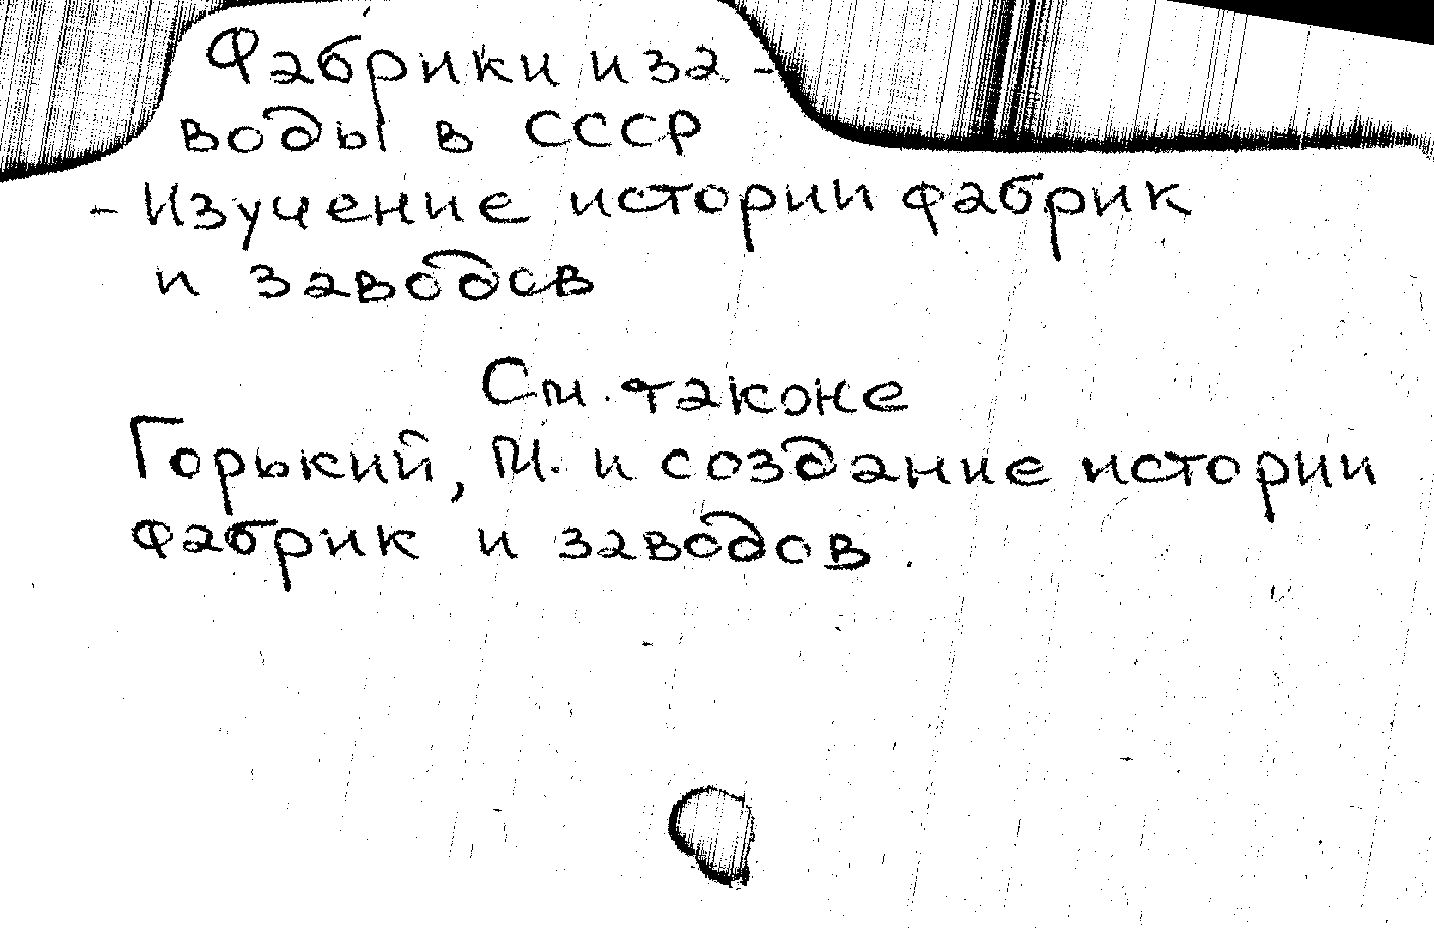 Фабрики и за-
воды в СССР
- Изучение истории фабрик
и заводов
См. также
Горький, М. и создание истории
фабрик и заводов.